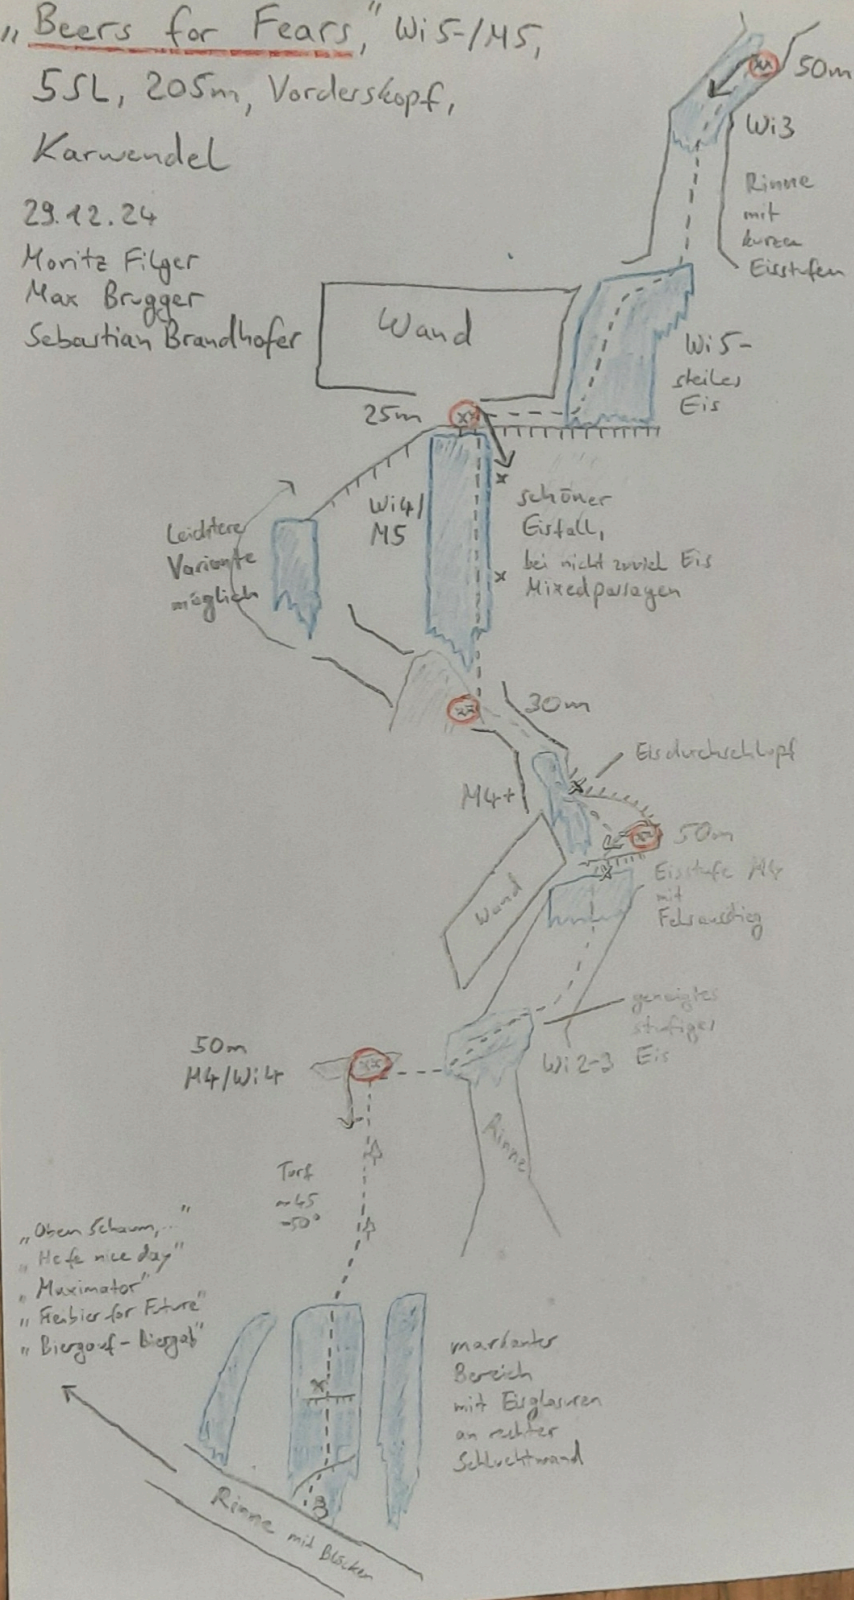 „Beers for Fears," Wi5-/M5,
5SL, 205m, Vorderskopf,
Karwendel
29.12.24
Moritz Filger
Max Brugger
Sebastian Brandhofer
50m
Wi3
Rinne
mit
kurzen
Eisstufen
Wand
Wi5-
steiles
Eis
25m
Wi4/
M5
schöner
Eisfall,
bei nicht zuviel Eis
Mixedpassagen
Leichtere
Variante
möglich
30m
Eisdurchschlupf
M4+
50m
Eisstufe M4
mit
Felsausstieg
Wand
geneigtes
stufiges
Eis
Wi2-3
50m
M4/Wi4
Rinne
Turf
~45
-50°
„Oben Schaum,..."
„Hefe nice day"
„Maximator"
„Freibier for Future"
„Biergauf - Biergab"
markanter
Bereich
mit Eisglasuren
an rechter
Schluchtwand
Rinne mit Blöcken